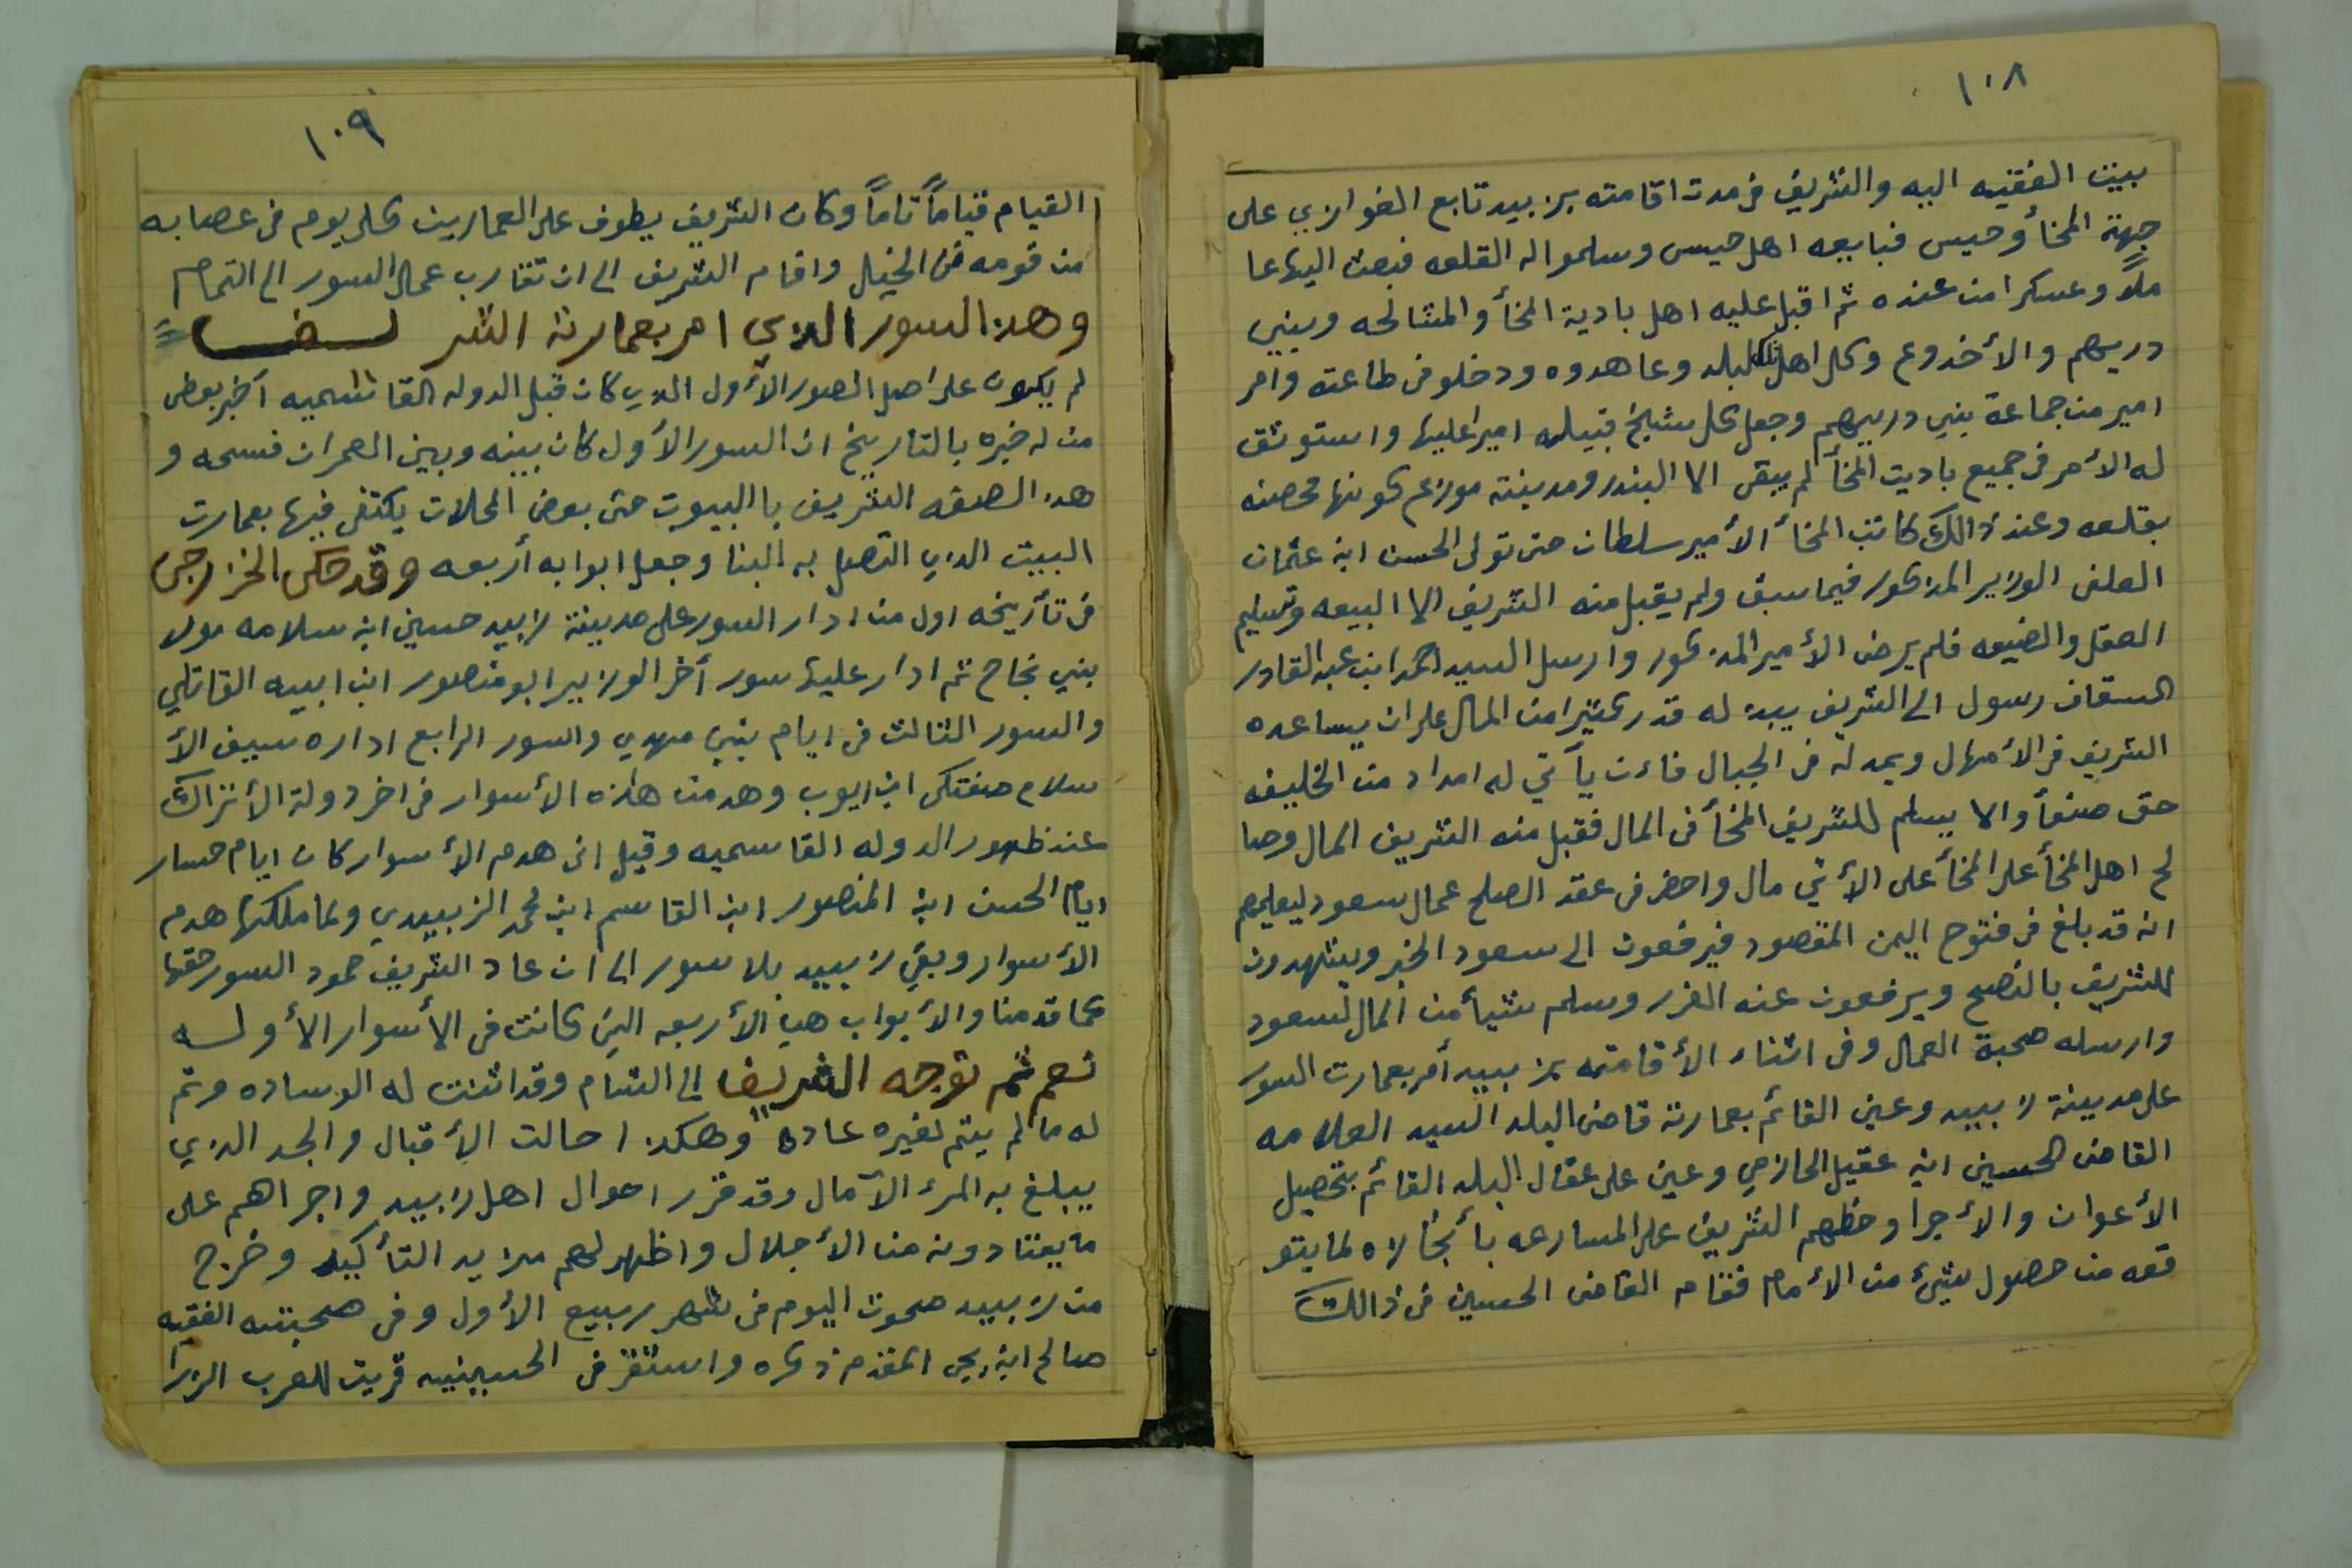 ١٠٨
بيت الفقيه اليه والشريف في مدت اقامته بزبيد تابع الغوازي على
جهة المخأ وحيس فبايعه اهل حيس وسلمو اله القلعه فبعث اليها عا
ملاً وعسكر امن عنده ثم اقبل عليه اهل بادية المخأ والمشالحه وبني
دريهم والأخدوع وكل اهل تلك البلد وعاهدوه ودخلو في طاعته وامر
امير من جماعة بني دريهم وجعل كل شيخ قبيله اميراً عليها واستوثق
له الأمر في جميع باديت المخأ لم يبقى الا البندر ومدينته موزع كونها محصنه
بقلعه وعند ذالك كاتب المخأ الأمير سلطان حتى تولى الحسن ابن عثمان
العلفى الوزير المذكور فيما سبق ولم يقبل منه الشريف الا البيعه وتسليم
العقل والضيعه فلم يرضى الأمير المذكور وارسل السيد احمد ابن عبد القادر
السقاف رسول الى الشريف يبدء له قدر كثيرا من المال على ان يساعده
الشريف في الأمهال ويمد له في الجبال فاءن يأتي له امداد من الخليفه
حق صنعأ والا يسلم للشريف المخأ في المال فقبل منه الشريف المال وصا
لح اهل المخأ على المخأ على الأتي مال واحضر في عقد الصلح عمال سعود ليعلمهم
انه قد بلغ في فتوح اليمن المقصود فيرفعون الى سعود الخبر ويشهدون
للشريف بالنصح ويرفعون عنه الغرر وسلم شيأ من المال لسعود
وارسله صحبة العمال وفي اثناء الأقامته بزبيد أمر بعمارت السور
على مدينة زبيد وعين القائم بعمارته قاضى البلد السيد العلامه
القاضى الحسين ابن عقيل الحازمي وعين على عقال البلد القائم بتحصيل
الأعوان والأجرا وحظهم الشريف على المسارعه بأنجالاه لما يتو
قعه من حصول شيئ من الأمام فقام القاضى الحسين في ذالك
١٠٩
القيام قياماً تاماً وكان الشريف يطوف على العمارين كل يوم في عصابه
من قومه في الخيل واقام الشريف الى ان تقارب عمال السور الى التمام
وهذ السور الذي امر بعمارته الشريف
لم يكون على اصل الصور الأول الذي كان قبل الدوله القاسميه أخبر بعض
من له خبره بالتاريخ ان السور الأول كان بينه وبين العمران فسحه و
هذ الصقه الشريف با البيوت حتى بعض المحلات يكتفى فيها بعمارت
البيت الذي التصل به البنا وجعل ابوابه أربعه وقد حكى الخزرجى
في تأريخه اول من ادار السور على مدينة زبيد حسين ابن سلامه مولا
بني نجاح ثم ادار عليها سور أخر الوزير ابو منصور ابن ابيه القاتلي
والسور الثالث في ايام بني مهدي والسور الرابع اداره سيف الأ
سلام صغتكى ابن ايوب وهدمت هذه الأسوار في اخر دولة الأتراك
عند ظهور الدوله القاسميه وقيل انى هدم الأسوار كان ايام حسار
ايام الحسن ابن المنصور ابن القاسم ابن محمد الزبيدي ولما ملكها هدم
الأسوار وبقي زبيد بلا سور الى ان عاد الشريف حمود السور حقها
كما قدمنا والأبواب هي الأربعه التي كانت في الأسوار الأوله
نعم ثم توجه الشريف الى الشام وقد اثنت له الوساده وتم
له ما لم يتم لغيره عاده وهكذ احالت الأقبال والجد الذي
يبلغ به المرء الآمال وقد قرر احوال اهل زبيد واجراهم على
ما يعتادونه من الأجلال واظهر لهم مزيد التأكيد وخرج
من زبيد صحوت اليوم في شهر ربيع الأول وفي صحبته الفقيه
صالح ابن يحى المقدم ذكره واستقر في الحسينيه قريت للعرب الزرا